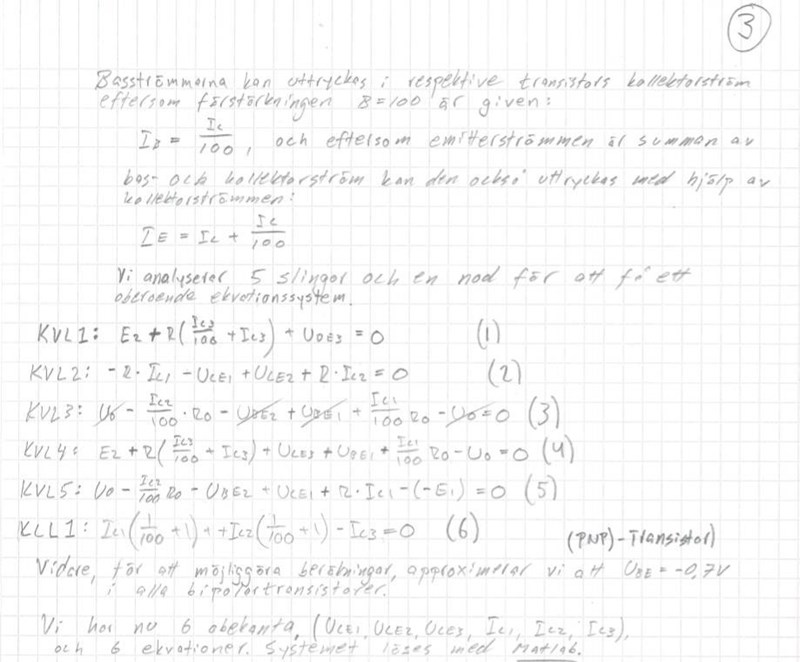 3
Basströmmarna kan uttryckas i respektive transistors kollektorström
eftersom förstärkningen B=100 är given:
I_B = Ic/100, och eftersom emitterströmmen är summan av
bas- och kollektorström kan den också uttryckas med hjälp av
kollektorströmmen:
I_E = Ic + Ic/100
Vi analyserar 5 slingor och en nod för att få ett
oberoende ekvationssystem.
KVL1: E2 + R(Ic3/100 + Ic3) + UBE3 = 0 (1)
KVL2: -R·Ic1 - UCE1 + UCE2 + R·Ic2 = 0 (2)
KVL3: U0 - Ic2/100·R0 - UBE2 + UBE1 + Ic1/100 R0 - U0 = 0 (3)
KVL4: E2 + R(Ic3/100 + Ic3) + UCE3 + UBE1 + Ic1/100 R0 - U0 = 0 (4)
KVL5: U0 - Ic2/100 R0 - UBE2 + UCE1 + R·Ic1 - (-E1) = 0 (5)
KCL1: Ic1(1/100 + 1) + +Ic2(1/100 + 1) - Ic3 = 0 (6)
(PNP)-Transistor)
Vidare, för att möjliggöra beräkningar, approximerar vi att UBE = -0,7V
i alla bipolärtransistorer.
Vi har nu 6 obekanta, (UCE1, UCE2, UCE3, Ic1, Ic2, Ic3),
och 6 ekvationer. Systemet löses med Matlab.